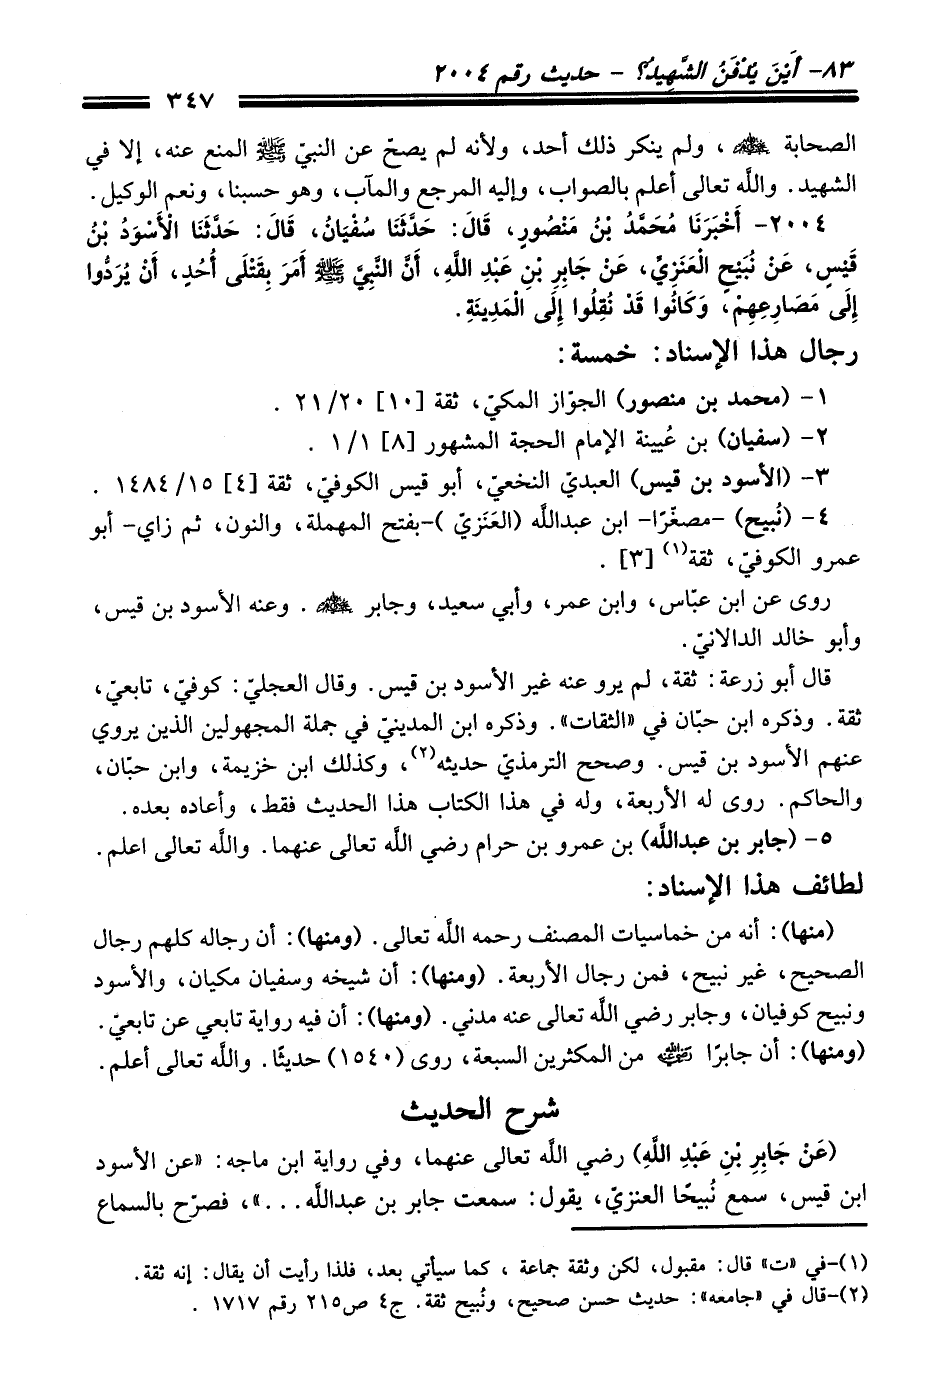 ٨٣- أَيْنَ يُدْفَنُ الشَّهِيدُ؟ - حديث رقم ٢٠٠٤
٣٤٧
الصحابة ﷺ، ولم ينكر ذلك أحد، ولأنه لم يصحّ عن النبيّ ﷺ المنع عنه، إلا في
الشهيد. واللَّه تعالى أعلم بالصواب، وإليه المرجع والمآب، وهو حسبنا، ونعم الوكيل.
٢٠٠٤- أَخْبَرَنَا مُحَمَّدُ بْنُ مَنْصُورٍ، قَالَ: حَدَّثَنَا سُفْيَانُ، قَالَ: حَدَّثَنَا الْأَسْوَدُ بْنُ
قَيْسٍ، عَنْ نُبَيْحٍ الْعَنَزِيِّ، عَنْ جَابِرِ بْنِ عَبْدِ اللَّهِ، أَنَّ النَّبِيَّ ﷺ أَمَرَ بِقَتْلَى أُحُدٍ، أَنْ يُرَدُّوا
إِلَى مَصَارِعِهِمْ، وَكَانُوا قَدْ نُقِلُوا إِلَى الْمَدِينَةِ.
رجال هذا الإسناد: خمسة:
١- (محمد بن منصور) الجوّاز المكيّ، ثقة [١٠] ٢١/٢٠ .
٢- (سفيان) بن عُيينة الإمام الحجة المشهور [٨] ١/١ .
٣- (الأسود بن قيس) العبديّ النخعيّ، أبو قيس الكوفيّ، ثقة [٤] ١٤٨٤/١٥ .
٤- (نُبيح) -مصغّرًا- ابن عبداللَّه (العَنَزيّ )-بفتح المهملة، والنون، ثم زاي- أبو
عمرو الكوفيّ، ثقة(١) [٣] .
روى عن ابن عبّاس، وابن عمر، وأبي سعيد، وجابر . وعنه الأسود بن قيس،
وأبو خالد الدالانيّ.
قال أبو زرعة: ثقة، لم يرو عنه غير الأسود بن قيس. وقال العجليّ: كوفيّ، تابعيّ،
ثقة. وذكره ابن حبّان في «الثقات». وذكره ابن المدينيّ في جملة المجهولين الذين يروي
عنهم الأسود بن قيس. وصحح الترمذيّ حديثه(٢)، وكذلك ابن خزيمة، وابن حبّان،
والحاكم. روى له الأربعة، وله في هذا الكتاب هذا الحديث فقط، وأعاده بعده.
٥- (جابر بن عبداللَّه) بن عمرو بن حرام رضي اللَّه تعالى عنهما. واللَّه تعالى اعلم.
لطائف هذا الإسناد:
(منها): أنه من خماسيات المصنف رحمه اللَّه تعالى. (ومنها): أن رجاله كلهم رجال
الصحيح، غير نبيح، فمن رجال الأربعة. (ومنها): أن شيخه وسفيان مكيان، والأسود
ونبيح كوفيان، وجابر رضي اللَّه تعالى عنه مدني. (ومنها): أن فيه رواية تابعي عن تابعيّ.
(ومنها): أن جابرًا رضي الله عنه من المكثرين السبعة، روى (١٥٤٠) حديثًا. واللَّه تعالى أعلم.
شرح الحديث
(عَنْ جَابِرِ بْنِ عَبْدِ اللَّهِ) رضي اللَّه تعالى عنهما، وفي رواية ابن ماجه: «عن الأسود
ابن قيس، سمع نُبيحًا العنزيّ، يقول: سمعت جابر بن عبداللَّه...»، فصرّح بالسماع
(١)-في «ت» قال: مقبول، لكن وثقة جماعة ، كما سيأتي بعد، فلذا رأيت أن يقال: إنه ثقة.
(٢)-قال في «جامعه»: حديث حسن صحيح، ونُبيح ثقة. ج٤ ص٢١٥ رقم ١٧١٧ .